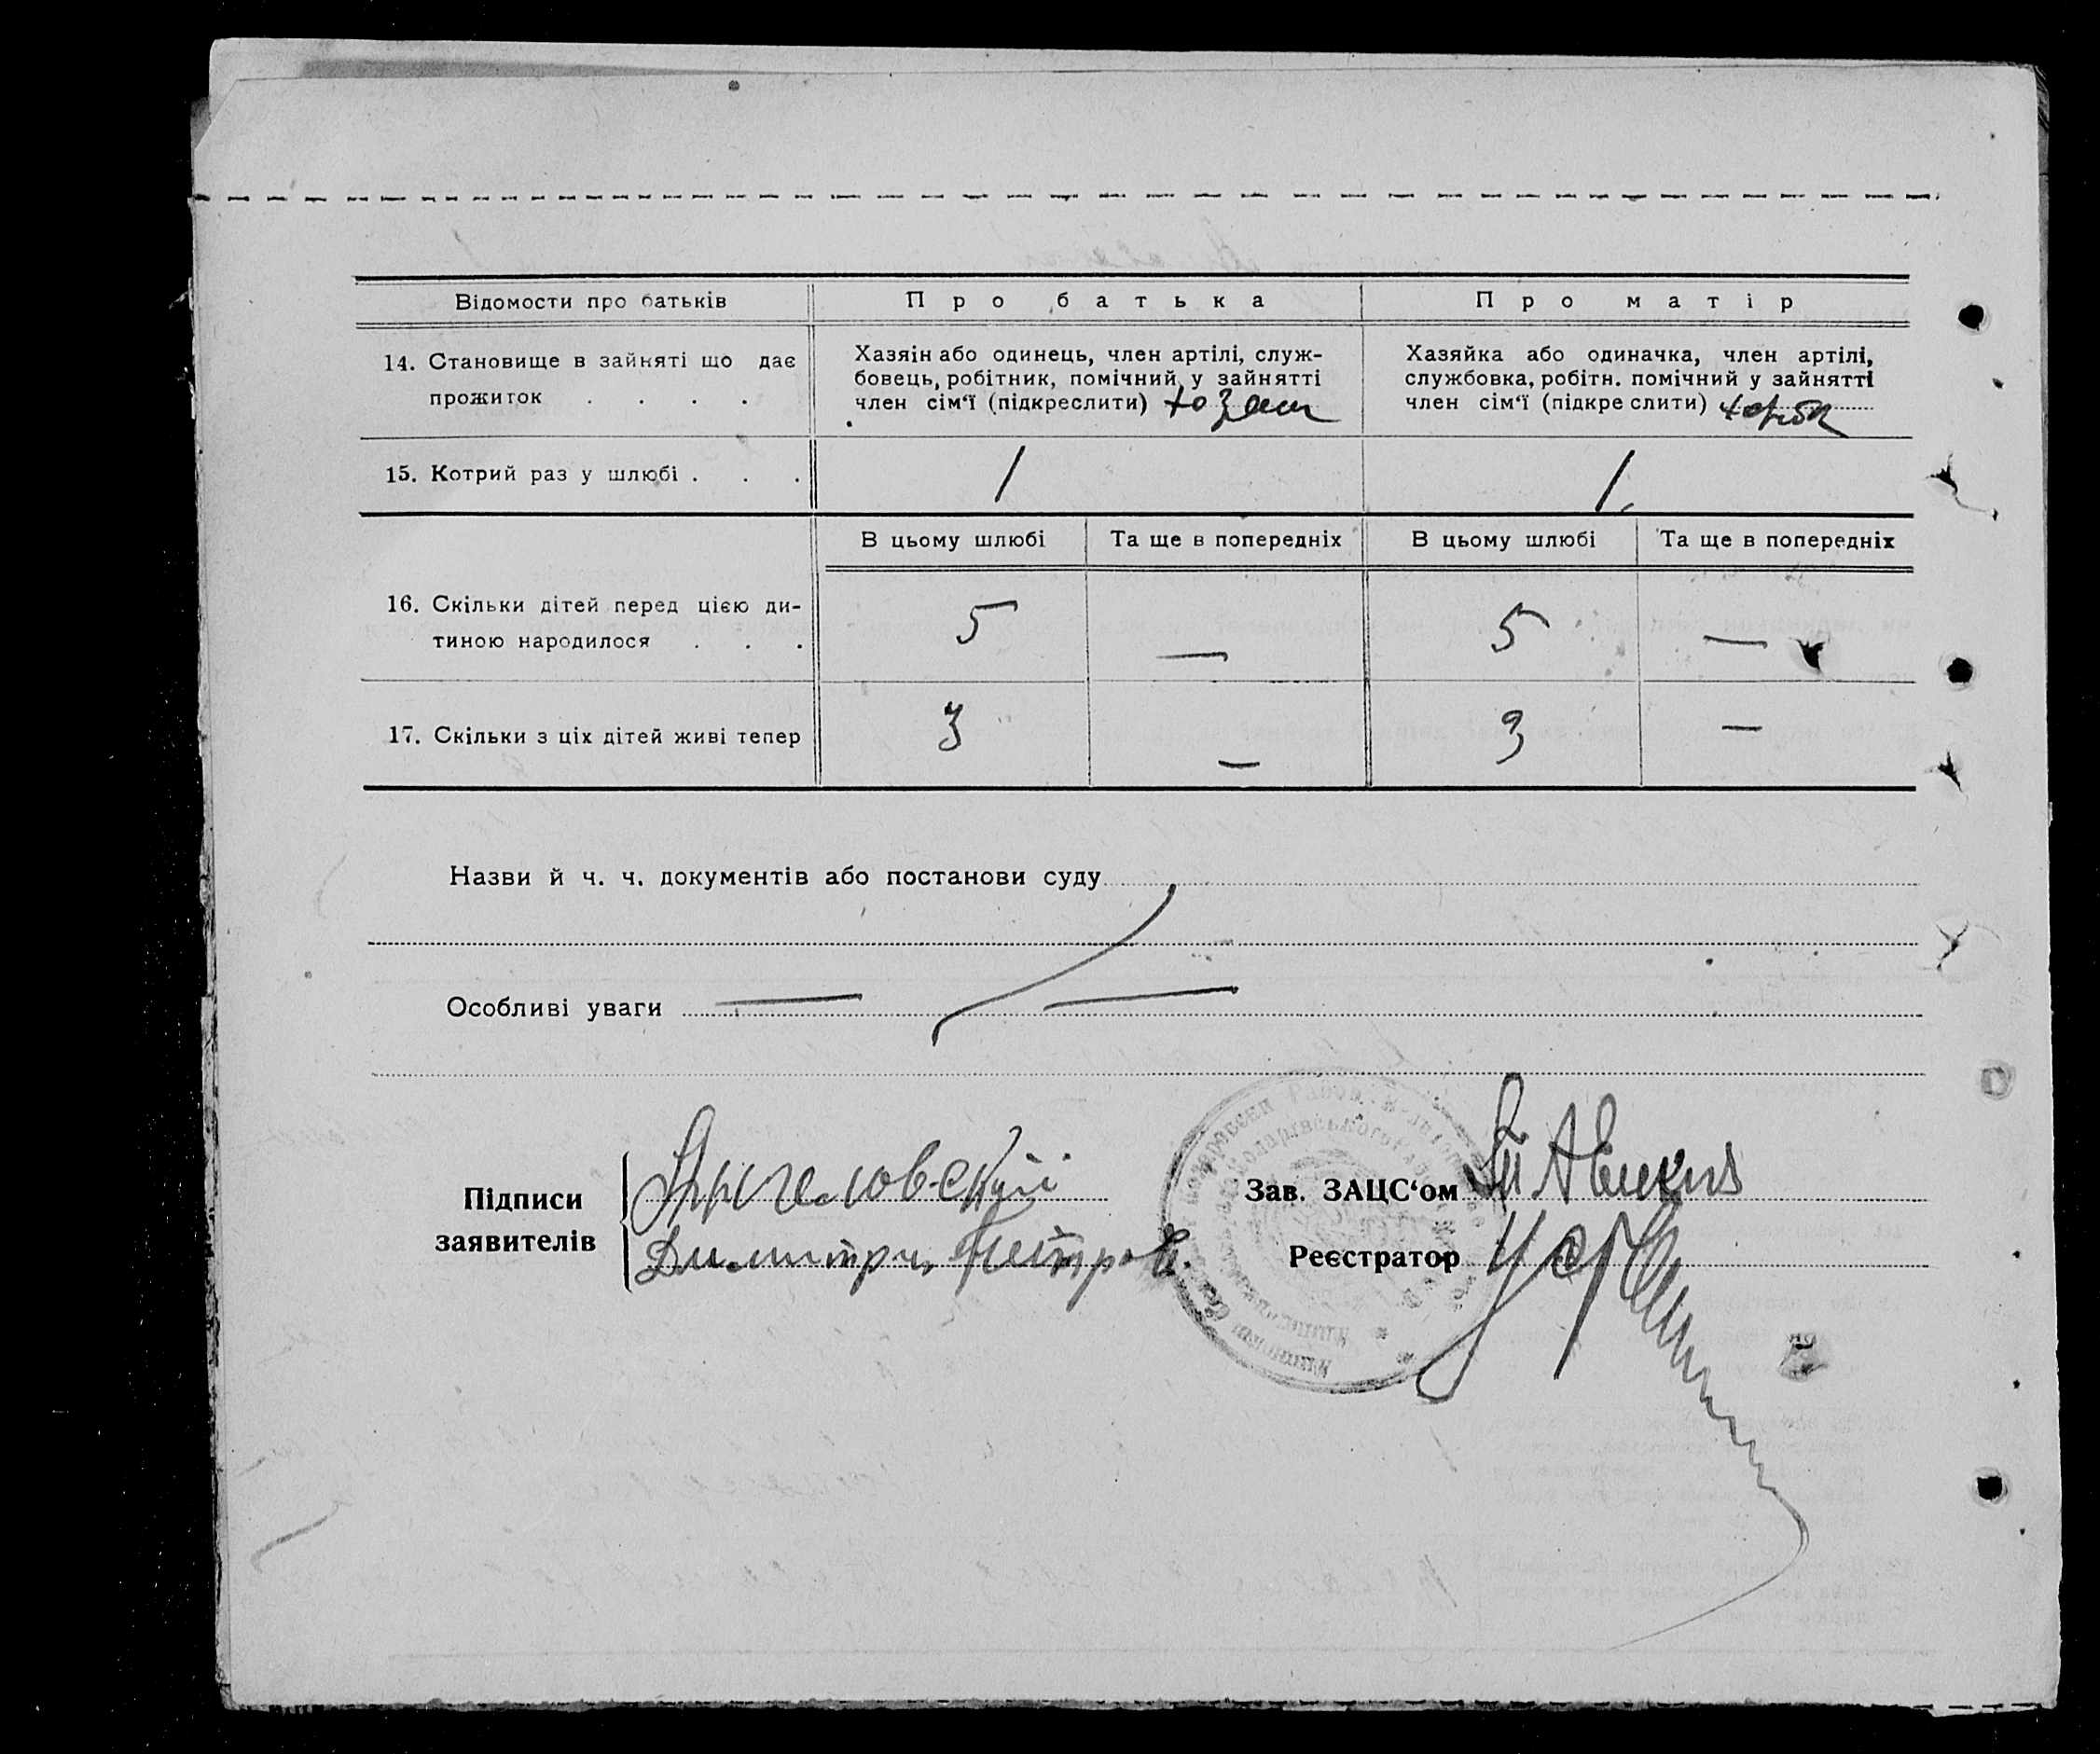 Відомости про батьків
Про батька
Про матір
14. Становище в зайняті що дає
прожиток . . . .
Хазяін або одинець, член артілі, служ-
бовець, робітник, помічний у зайнятті
член сім'ї (підкреслити)
Хазяйка або одиначка, член артілі,
службовка, робітн. помічний у зайнятті
член сім'ї (підкреслити)
15. Котрий раз у шлюбі . . .
1
1
В цьому шлюбі
Та ще в попередніх
В цьому шлюбі
Та ще в попередніх
16. Скільки дітей перед цією ди-
тиною народилося . . .
5
—
5
—
17. Скільки з ціх дітей живі тепер
3
—
3
—
Назви й ч. ч. документів або постанови суду
Особливі уваги — —
Підписи
заявителів
Зав. ЗАЦС'ом
Реєстратор